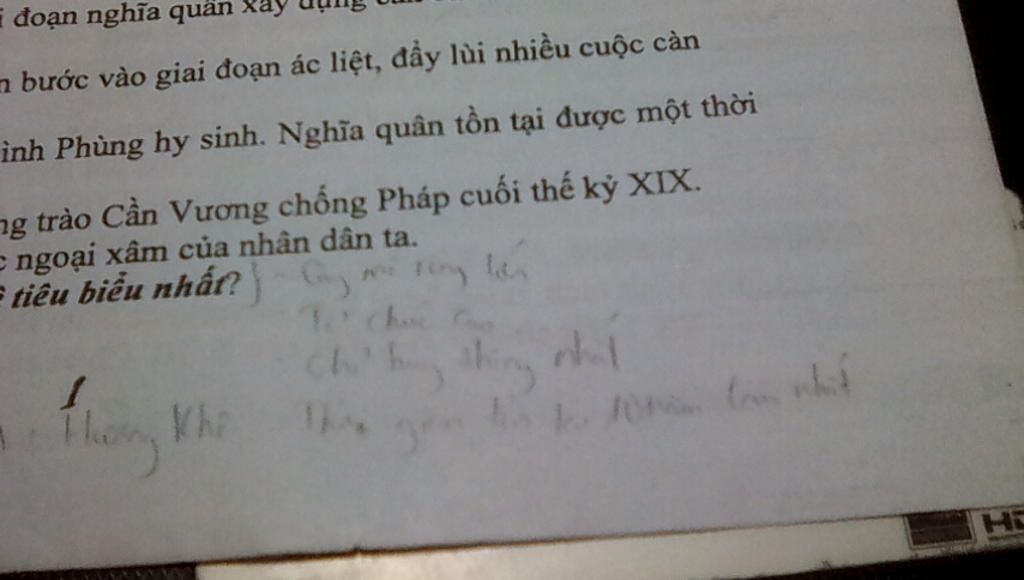 đoạn nghĩa quân xây dựng
bước vào giai đoạn ác liệt, đẩy lùi nhiều cuộc càn
ình Phùng hy sinh. Nghĩa quân tồn tại được một thời
ng trào Cần Vương chống Pháp cuối thế kỷ XIX.
c ngoại xâm của nhân dân ta.
tiêu biểu nhất?
Tổ chức cao
Chỉ huy thống nhất
Hương Khê
Thời gian tồn tại 10 năm lâu nhất